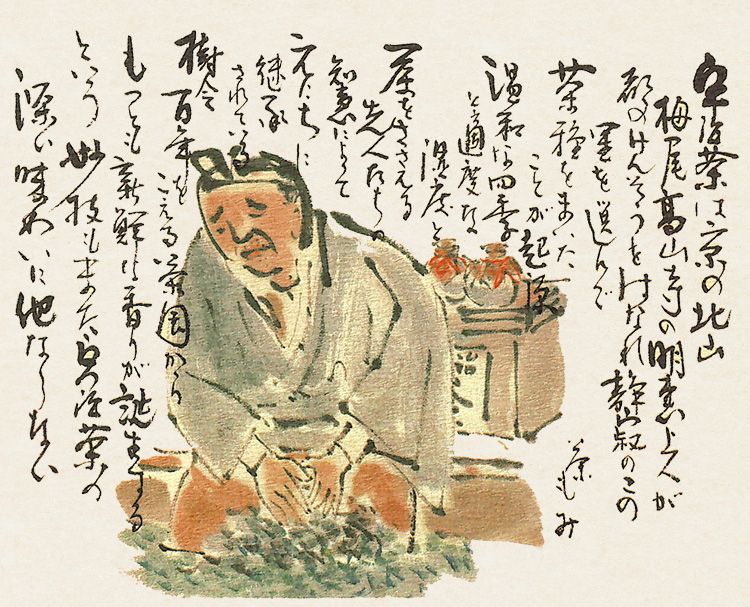 宇治茶は京の北山
栂尾高山寺の明恵上人が
都のけんそうをはなれ静寂のこの
里を選んで
茶種をまいた
ことが起源
温和な四季
と適度な
湿度と
茶をささえる
先人たちの
知恵によって
継承
されている
樹令百年をこえる茶園から
もっとも新鮮な香りが誕生する
という妙技もまた宇治茶の
深い味わいに他ならない
茶もみ